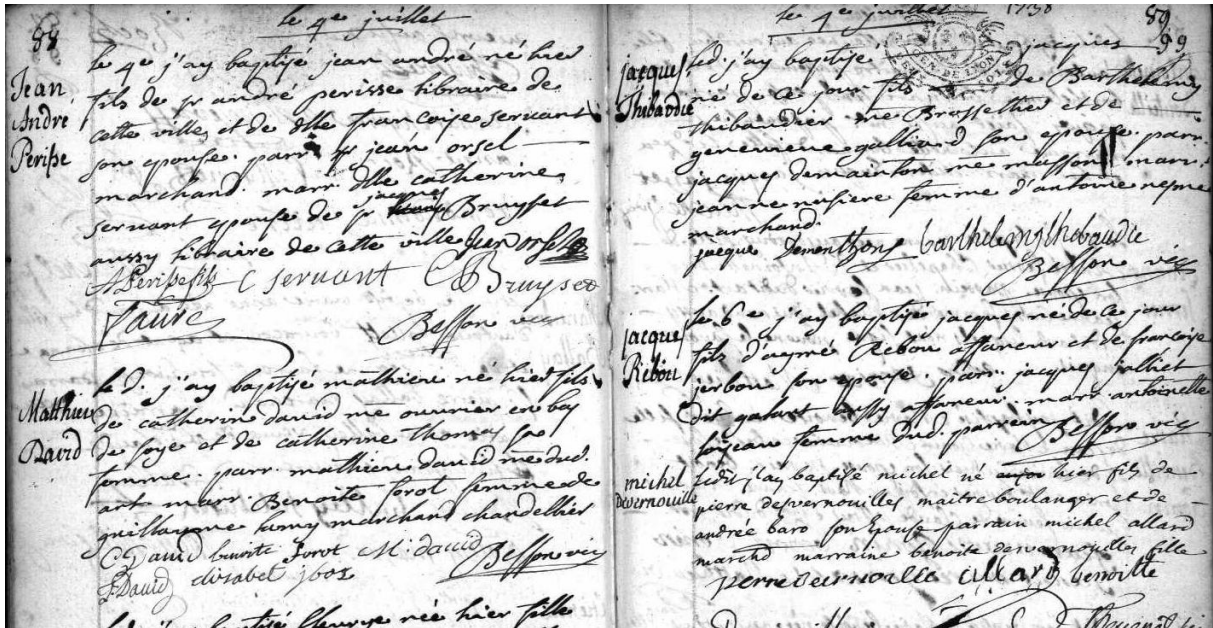 88
le 4e juillet
Jean
André
Perisse
le 4e j'ay baptisé jean andré né hier
fils de sr andré perisse libraire de
cette ville, et de dlle françoise servant
son epouse. parr. sr jean orsel
marchand. marr. dlle catherine
servant epouse de sr jacques Bruyset
aussy libraire de cette ville Jean orsel
A Perisse fils C servant C Bruyset
Faure Besson vic
Matthieu
David
led. j'ay baptisé mathieu né hier fils
de catherin david me ouvrier en bas
de soye et de catherine thomas sa
femme. parr. mathieu david me dud.
art marr. Benoite forot femme de
guillaume marchand chandellier
C David benoite forot M. david Besson vic
J David elisabet
led. j'ay baptisé fleurye née hier fille
le 4e juillet 1738
89
99
jacques
Thibaudie
led. j'ay baptisé jacques
né de ce jour fils de Barthelemy
thibaudier me Brossettier et de
genevieve galliard son epouse. parr.
jacques demainton me masson marr.
jeanne rusiere femme d'antoine nesme
marchand.
jacque Dementhon barthelemy thibaudie
Besson vic
jacques
Ribou
le 6e j'ay baptisé jacques né de ce jour
fils d'aymé Ribou affaneur et de françoise
jerbou son epouse. parr. jacques julliet
dit galart aussy affaneur. marr. antoinette
loyseau femme dud. parrein Besson vic
michel
Desvernouille
ledit j'ay baptisé michel né hier fils de
pierre desvernouilles maitre boulanger et de
andrée baro son Epouse parrain michel allard
marchd marraine benoite desvernouilles fille
pierre devernouille allard benoitte